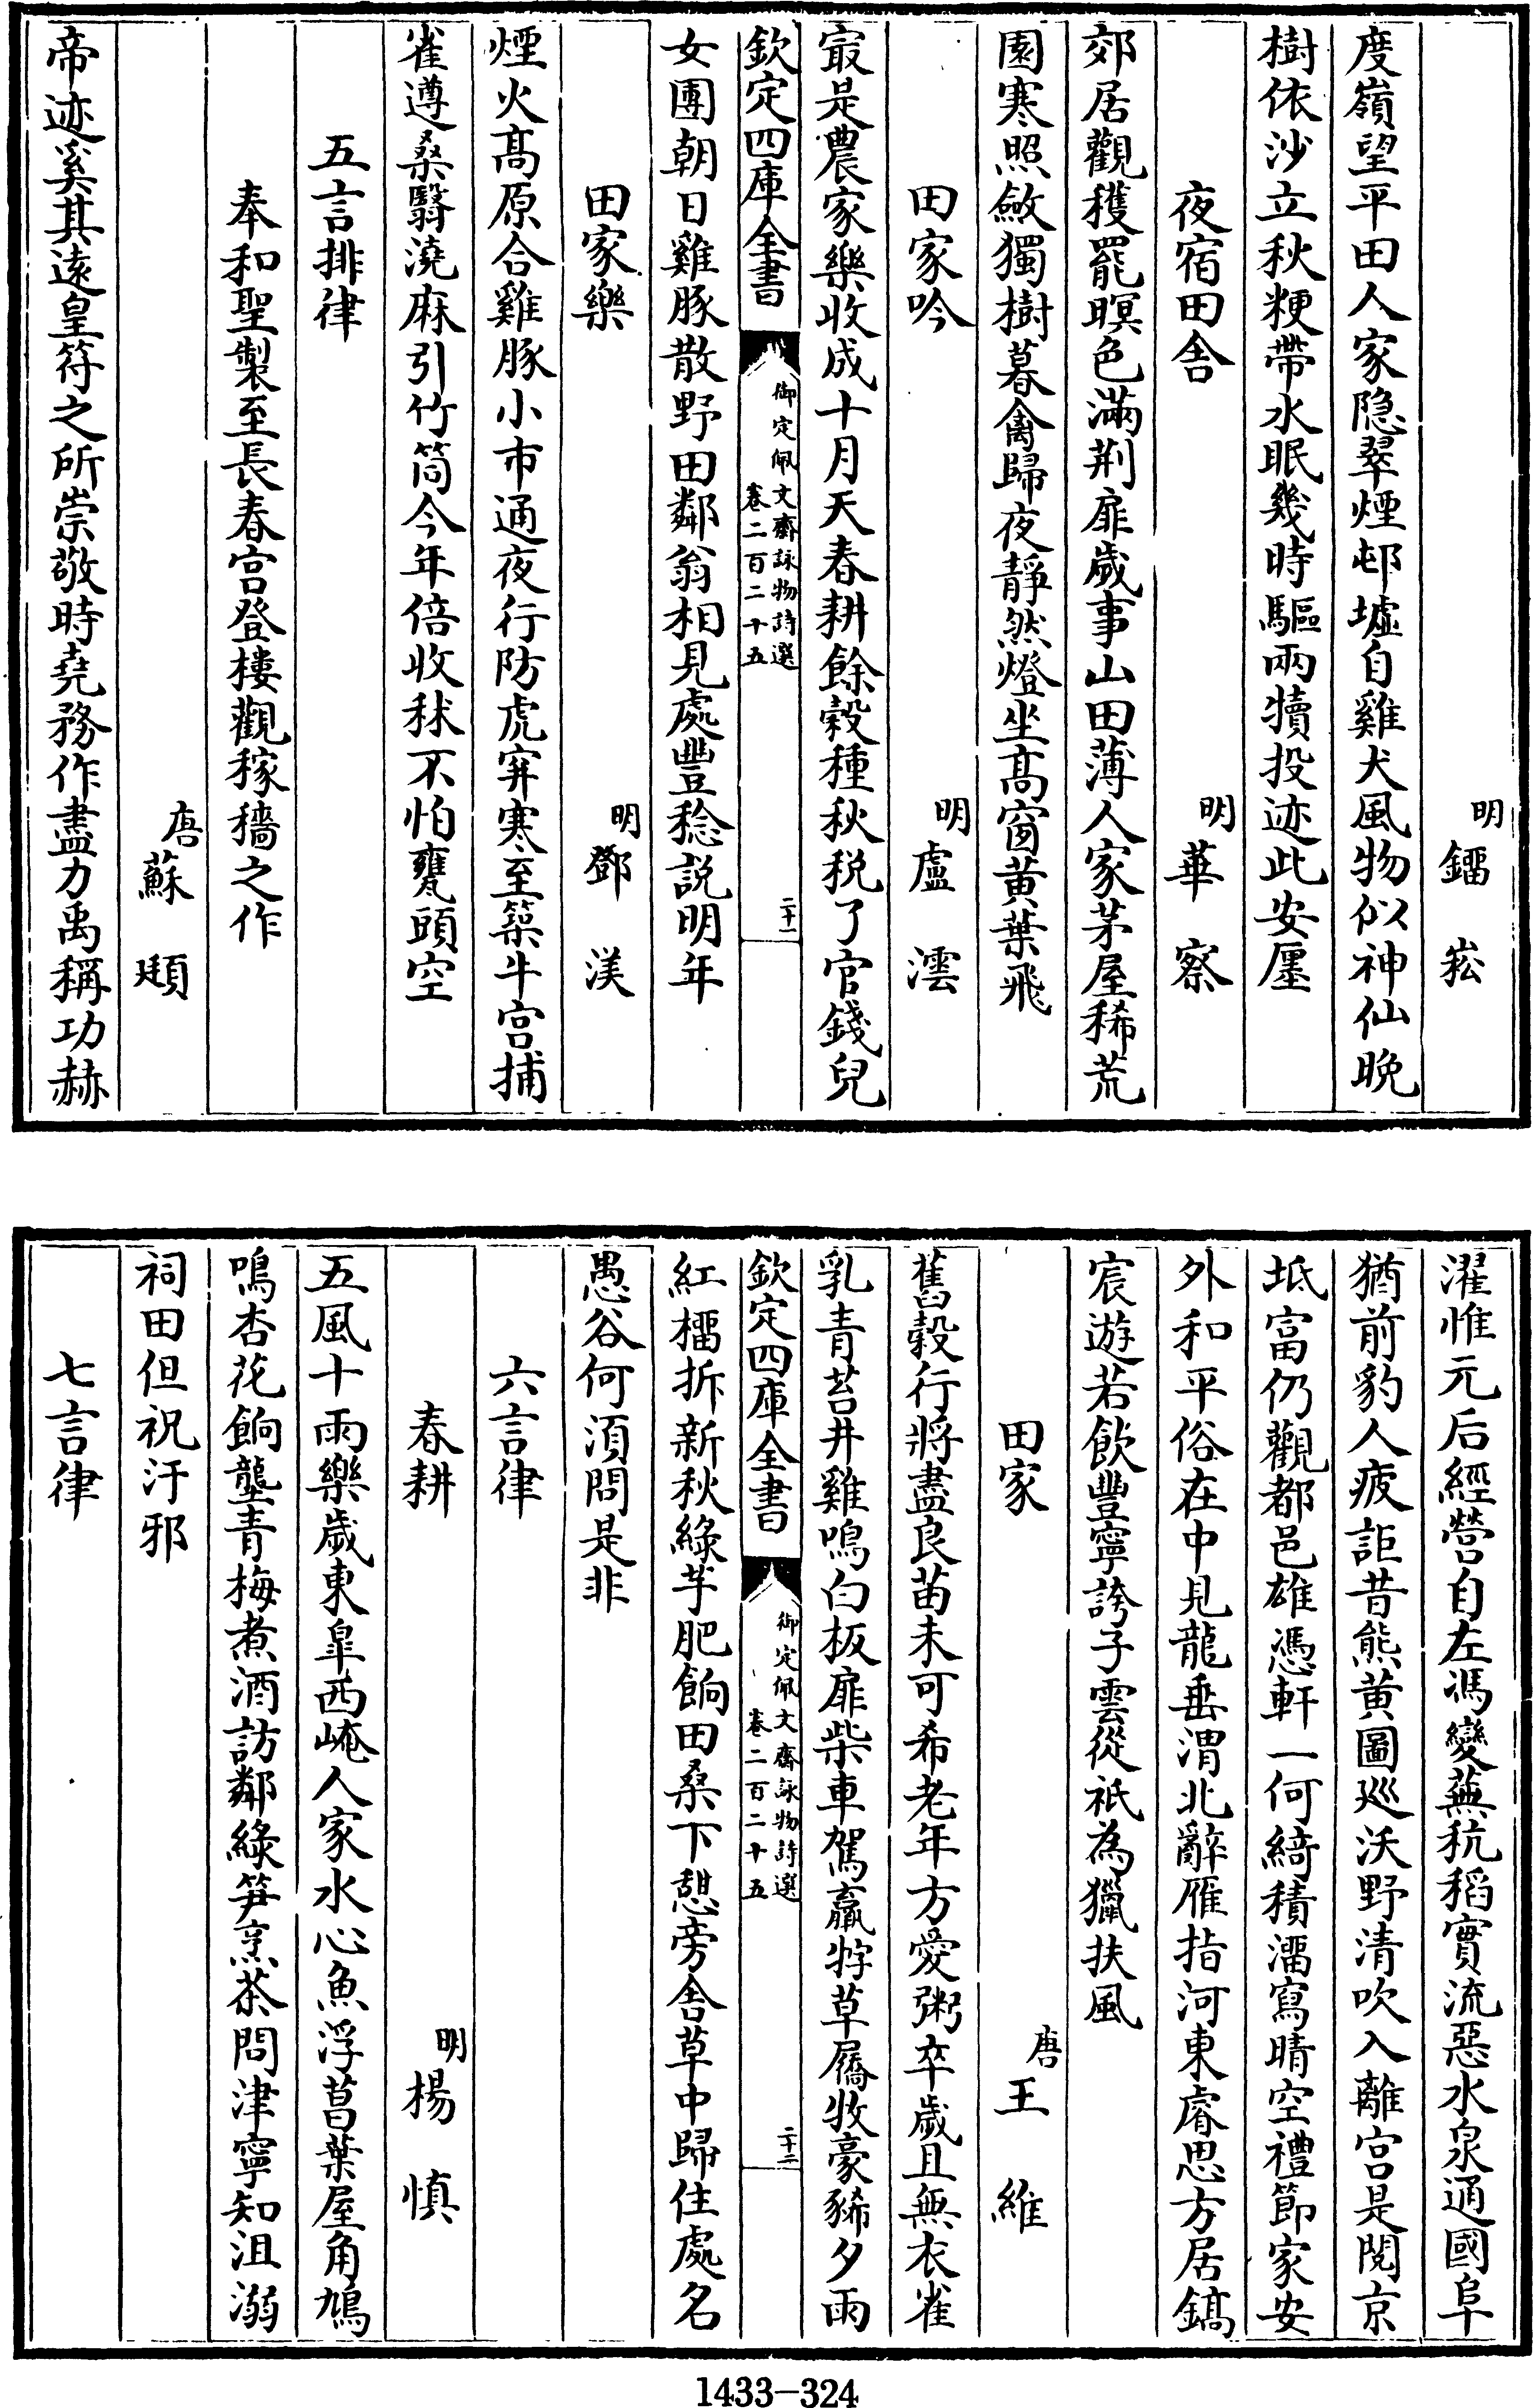 明鐂崧
度嶺望平田人家隐翠煙邨墟自雞犬風物似神仙晚
樹依沙立秋粳帶水眠幾時驅兩犢投迹此安廛
夜宿田舍
明華察
郊居觀穫罷暝色滿荆扉歲事山田薄人家茅屋稀荒
園寒照斂獨樹暮禽歸夜靜然燈坐髙窗黄葉飛
田家吟
明盧澐
㝡是農家樂收成十月天春耕餘榖種秋税了官錢兒
欽定四庫全書
御定佩文齋詠物詩選
卷二百二十五
二十一
女團朝日雞豚散野田鄰翁相見處豐稔説明年
田家樂
明鄧渼
煙火髙原合雞豚小市通夜行防虎穽寒至築牛宫捕
雀遵桑翳澆麻引竹筒今年倍收秫不怕甕頭空
五言排律
奉和聖製至長春宫登樓觀稼穡之作
唐蘇頲
帝迹奚其逺皇符之所崇敬時堯務作盡力禹稱功赫
濯惟元后經營自左馮變蕪秔稻實流惡水泉通國阜
猶前豹人疲詎昔熊黄圖廵沃野清吹入離宫是閲京
坻富仍觀都邑雄憑軒一何綺積溜寫晴空禮節家安
外和平俗在中見龍垂渭北辭雁指河東睿思方居鎬
宸遊若飲豐寧誇子雲從祇為獵扶風
田家
唐王維
舊榖行將盡良苗未可希老年方愛粥卒歲且無衣雀
乳青苔井雞鳴白板扉柴車駕羸牸草屩牧豪豨夕雨
欽定四庫全書
御定佩文齋詠物詩選
卷二百二十五
二十二
紅榴拆新秋綠芋肥餉田桑下憇旁舍草中歸住處名
愚谷何須問是非
六言律
春耕
明楊慎
五風十雨樂歲東臯西崦人家水心魚浮菖葉屋角鳩
鳴杏花餉壟青梅煮酒訪鄰綠笋烹茶問津寧知沮溺
祠田但祝汙邪
七言律
1433-324